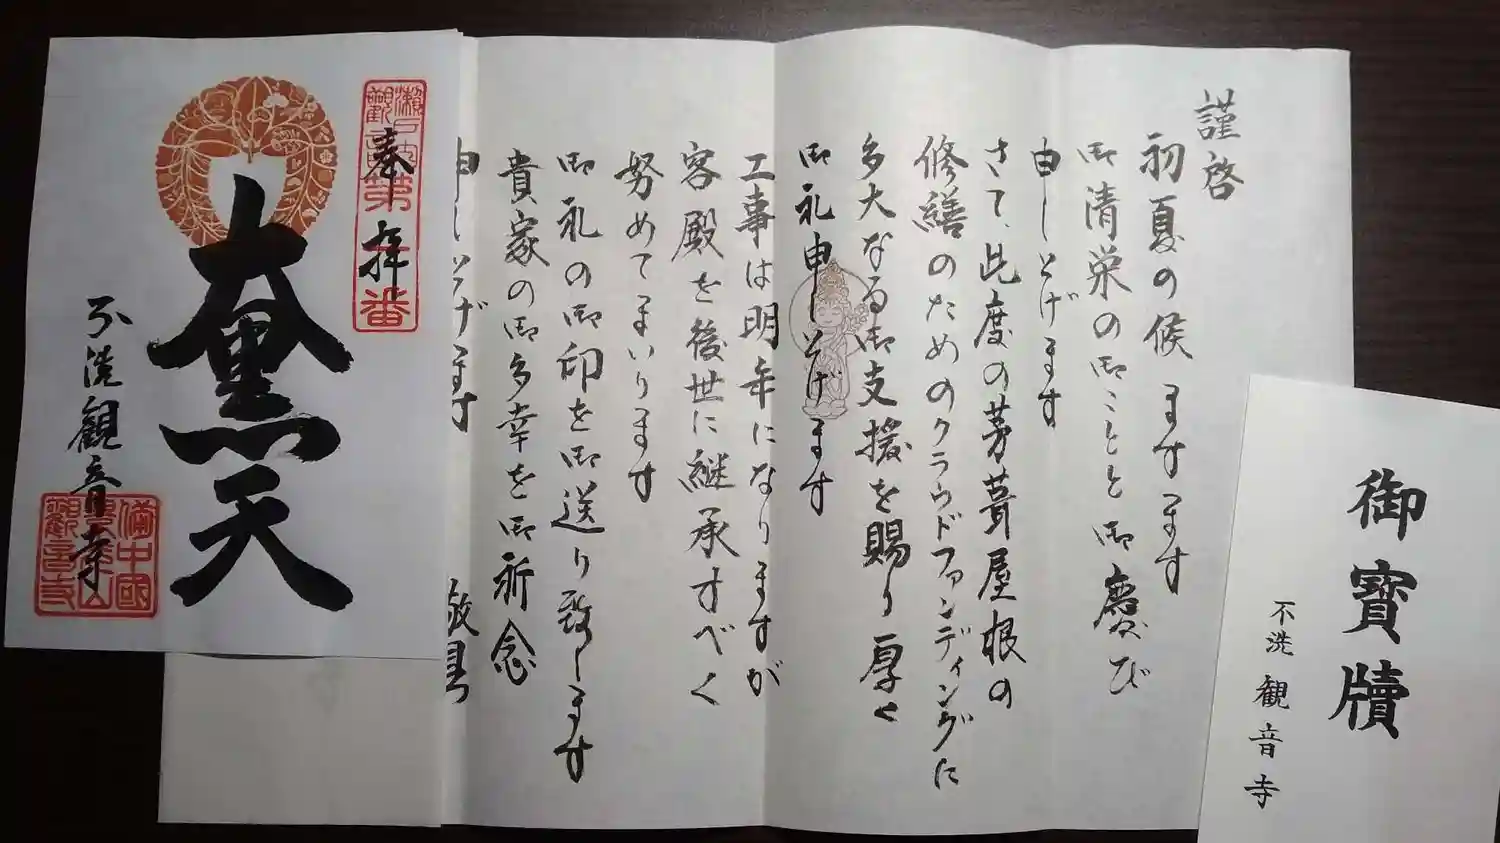 謹啓
初夏の候 ますます
御清栄のこととと御慶び
申し上げます
さて、此度の茅葺屋根の
修繕のためのクラウドファンディングに
多大なる御支援を賜り厚く
御礼申し上げます
工事は明年になりますが
客殿を後世に継承すべく
努めてまいります
御礼の御印を御送り致します
貴家の御多幸を御祈念
申し上げます
敬具
奉拝
大黒天
不洗観音寺
第 番
備中國
観音寺
御寶牘
不洗観音寺